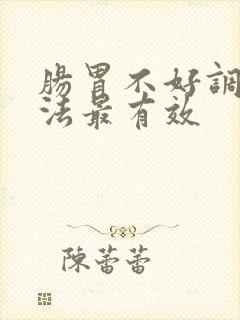 腸胃不好調
法最有效
陳蕾蕾